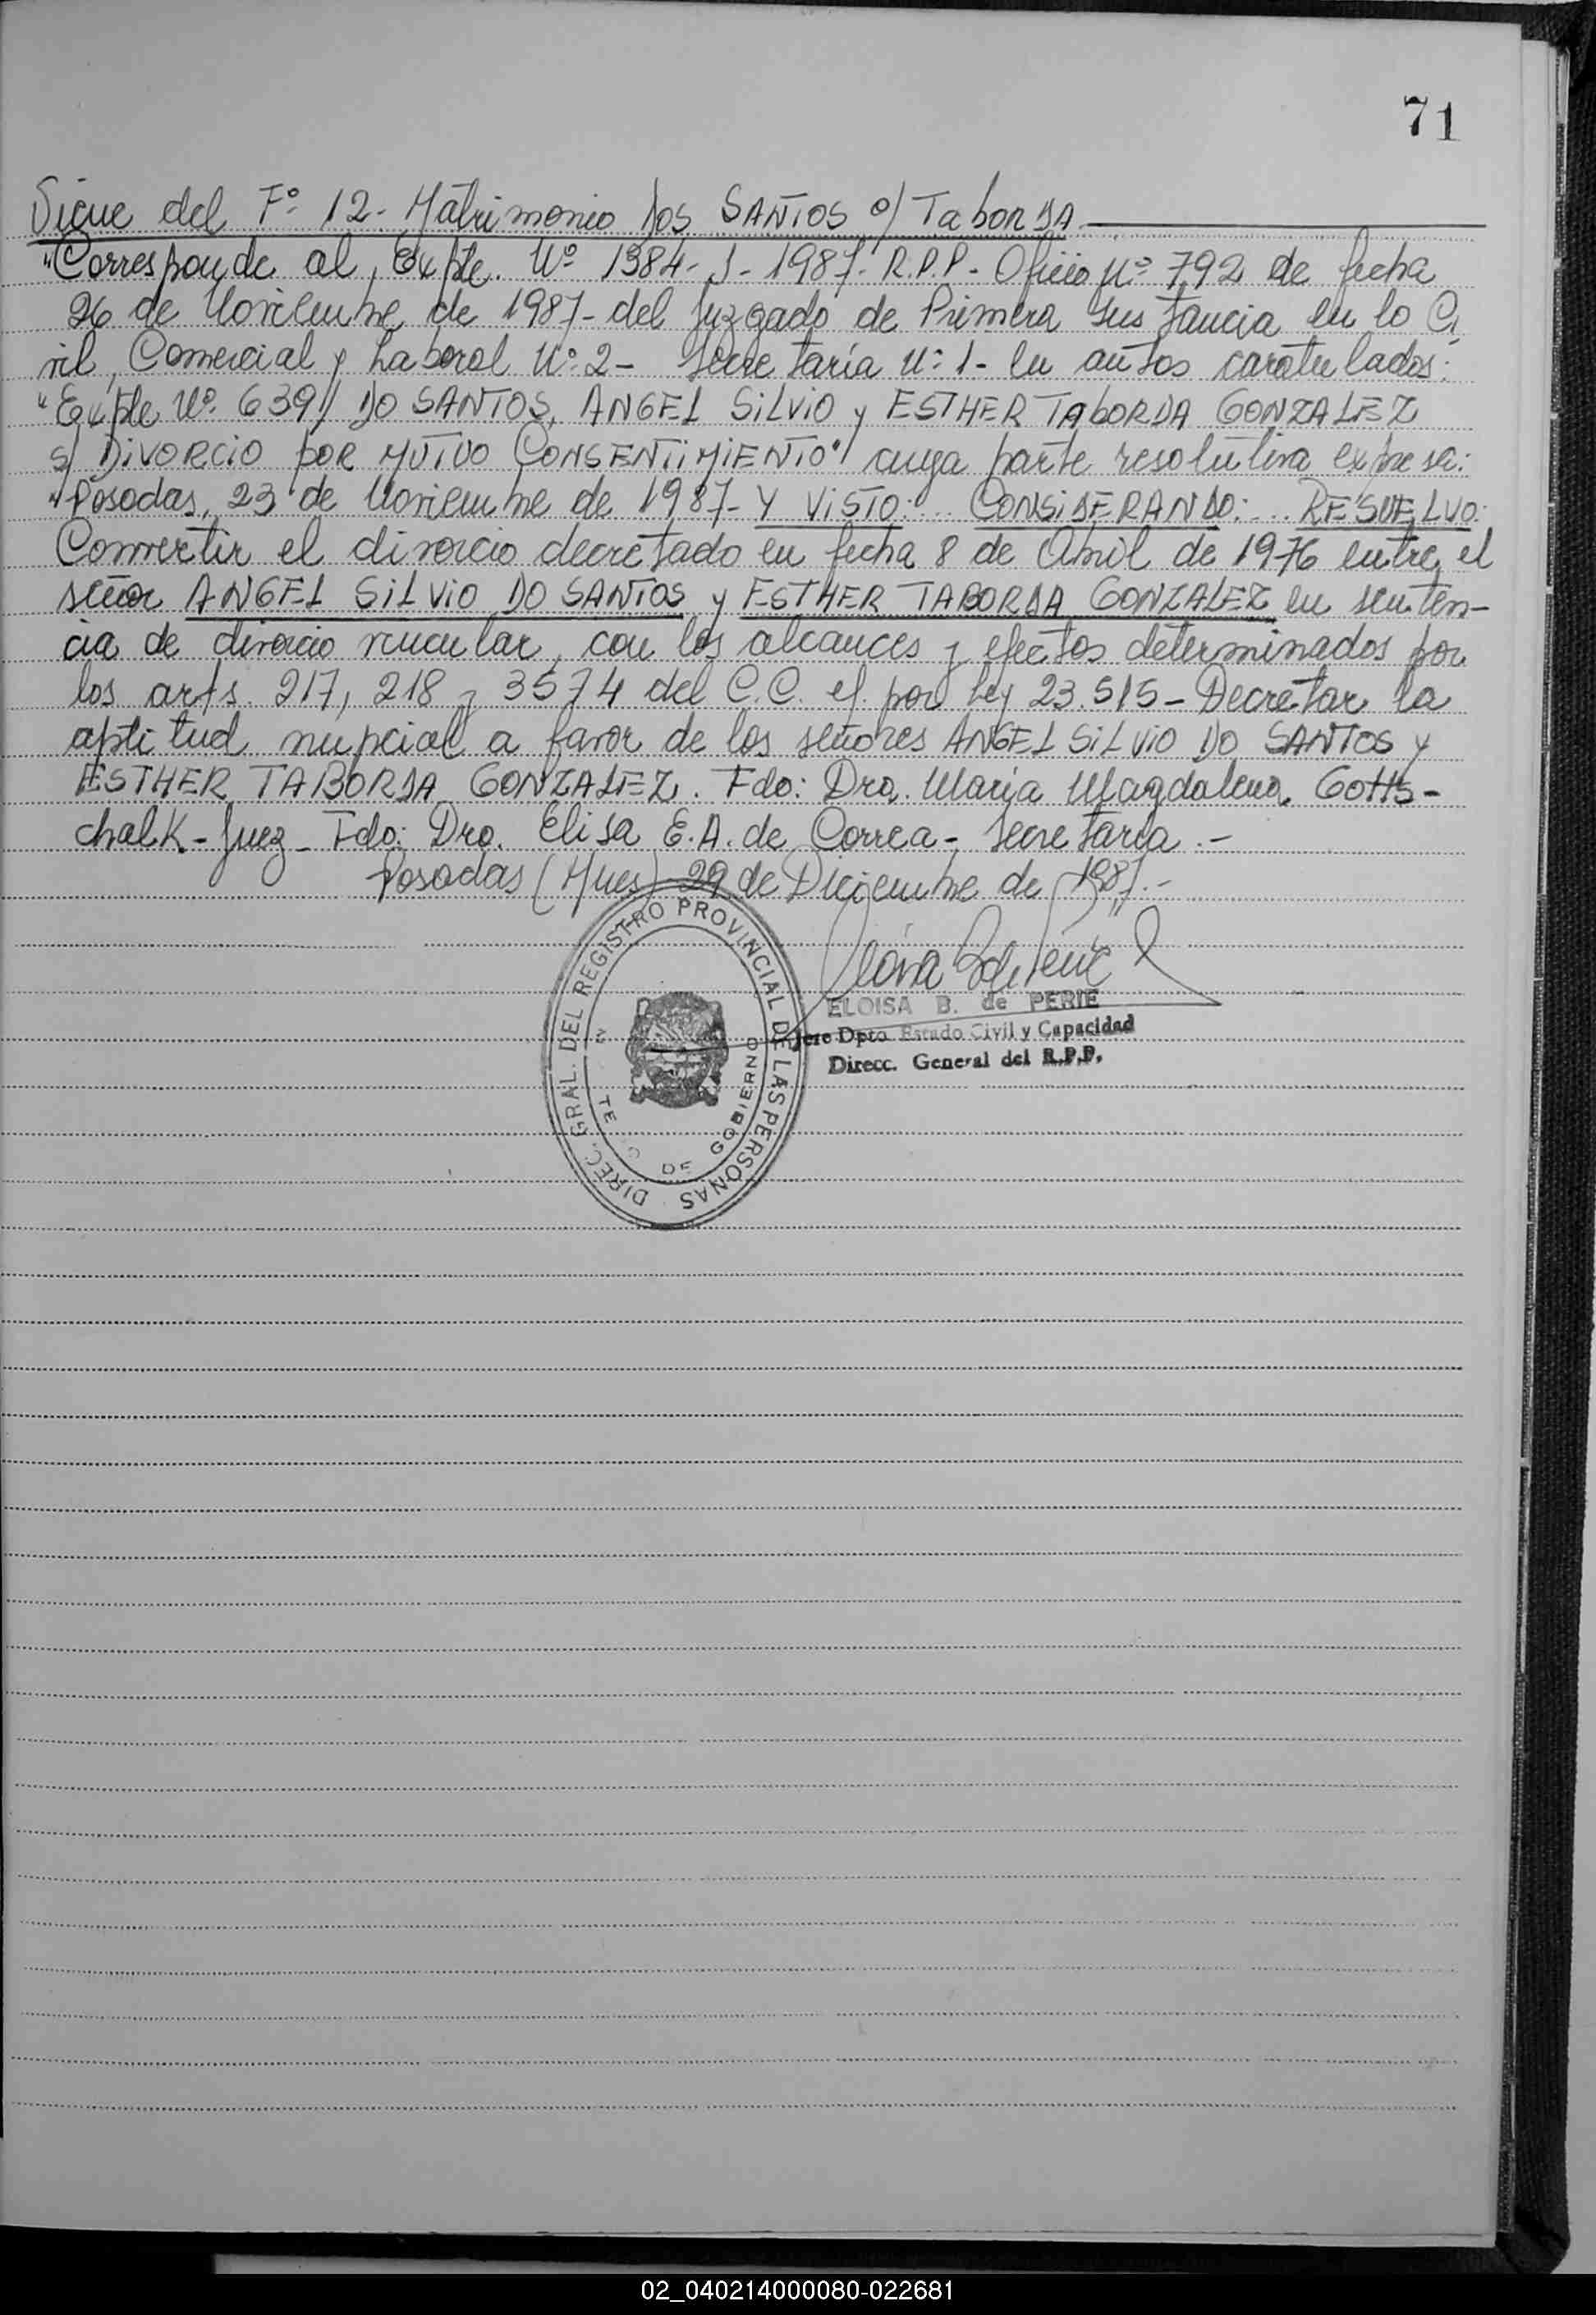 71
Sigue del Fº 12 - Matrimonio Dos SANTOS c/ TaborDA
"Corresponde al Expte. Nº 1384- J- 1987- R.P.P- Oficio Nº 792 de fecha
26 de Noviembre de 1987- del Juzgado de Primera Instancia en lo Ci
vil, Comercial y Laboral Nº 2- Secretaría Nº 1- en autos caratulados:
"Expte Nº 639// DO SANTOS, ANGEL SILVIO y ESTHER TABORDA GONZALEZ
s/ DIVORCIO POR MUTUO CONSENTIMIENTO" cuya parte resolutiva expresa:
"Posadas, 23 de Noviembre de 1987- Y VISTO: ... CONSIDERANDO: ... RESUELVO:
Convertir el divorcio decretado en fecha 8 de Abril de 1976 entre el
señor ANGEL SILVIO DO SANTOS y ESTHER TABORDA GONZALEZ en senten-
cia de divorcio vincular, con los alcances y efectos determinados por
los arts. 217, 218 y 3574 del C.C. ef. por Ley 23.515- Decretar la
aptitud nupcial a favor de los señores ANGEL SILVIO DO SANTOS y
ESTHER TABORDA GONZALEZ. Fdo: Dra. María Magdalena Gotts-
chalK- Juez- Fdo: Dra. Elisa E.A. de Correa- Secretaria.-
Posadas (Mnes) 29 de Diciembre de 1987.-
DIREC. GRAL. DEL REGISTRO PROVINCIAL DE LAS PERSONAS
DE GOBIERNO
ELOISA B. de PERIE
Jefe Dpto. Estado Civil y Capacidad
Direcc. General del R.P.P.
02_040214000080-022681